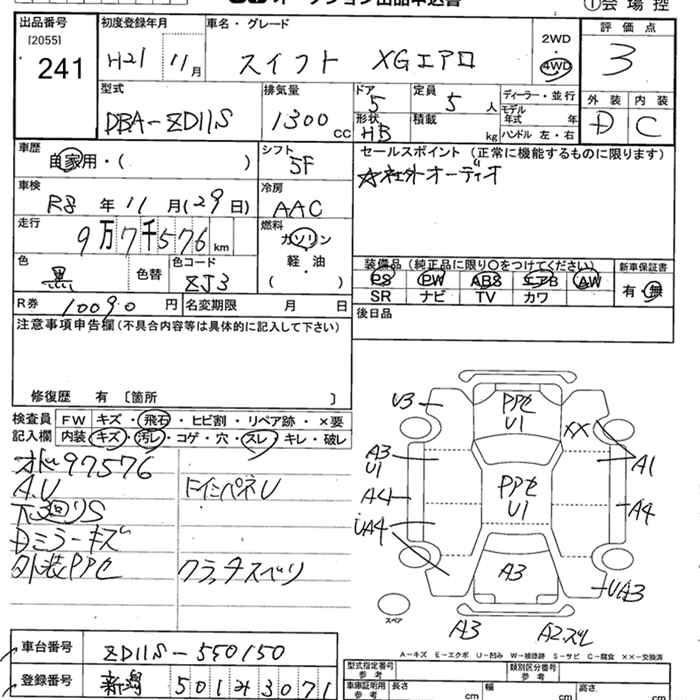 オークション出品申込書
①会場控
出品番号 初度登録年月 車名・グレード 評価点
[2055]
241 H21 11月 スイフト XGエアロ 2WD 4WD 3
型式 排気量 ドア 定員 ディーラー・並行 外装 内装
DBA-ZD11S 1300cc 5 5人 モデル年式 年 D C
形状 積載 ハンドル 左・右
HB kg
車歴 シフト セールスポイント(正常に機能するものに限ります)
自家用・( ) 5F ☆社外オーディオ
車検 冷房
R8年11月(29日) AAC
走行 燃料
9万7千576km ガソリン
軽・油
( )
色 色替 色コード 装備品(純正品に限り○をつけてください) 新車保証書
黒 ZJ3 PS PW ABS エアB AW 有・無
SR ナビ TV カワ
R券 10090円 名変期限 月 日 後日品
注意事項申告欄(不具合内容等は具体的に記入して下さい)
修復歴 有 [箇所 ]
検査員 FW キズ・飛石・ヒビ割・リペア跡・×要
記入欄 内装 キズ・汚レ・コゲ・穴・スレ・キレ・破レ
オド97576
A.U
下回りS
Dミラーキズ
外装PPセ クラッチスベリ
U3 PPセ U1 XX
A3 U1 PPセ U1 A1
A4 A4
UA4
A3 UA3
スペア
A3 A2スレ
A-キズ E-エクボ U-凹み W-補修跡 S-サビ C-腐食 ××-交換済
車台番号 ZD11S-550150
登録番号 新潟 501 43071
型式指定番号 参考 類別区分番号 参考
車庫証明用 参考 長さ cm 幅 cm 高さ cm